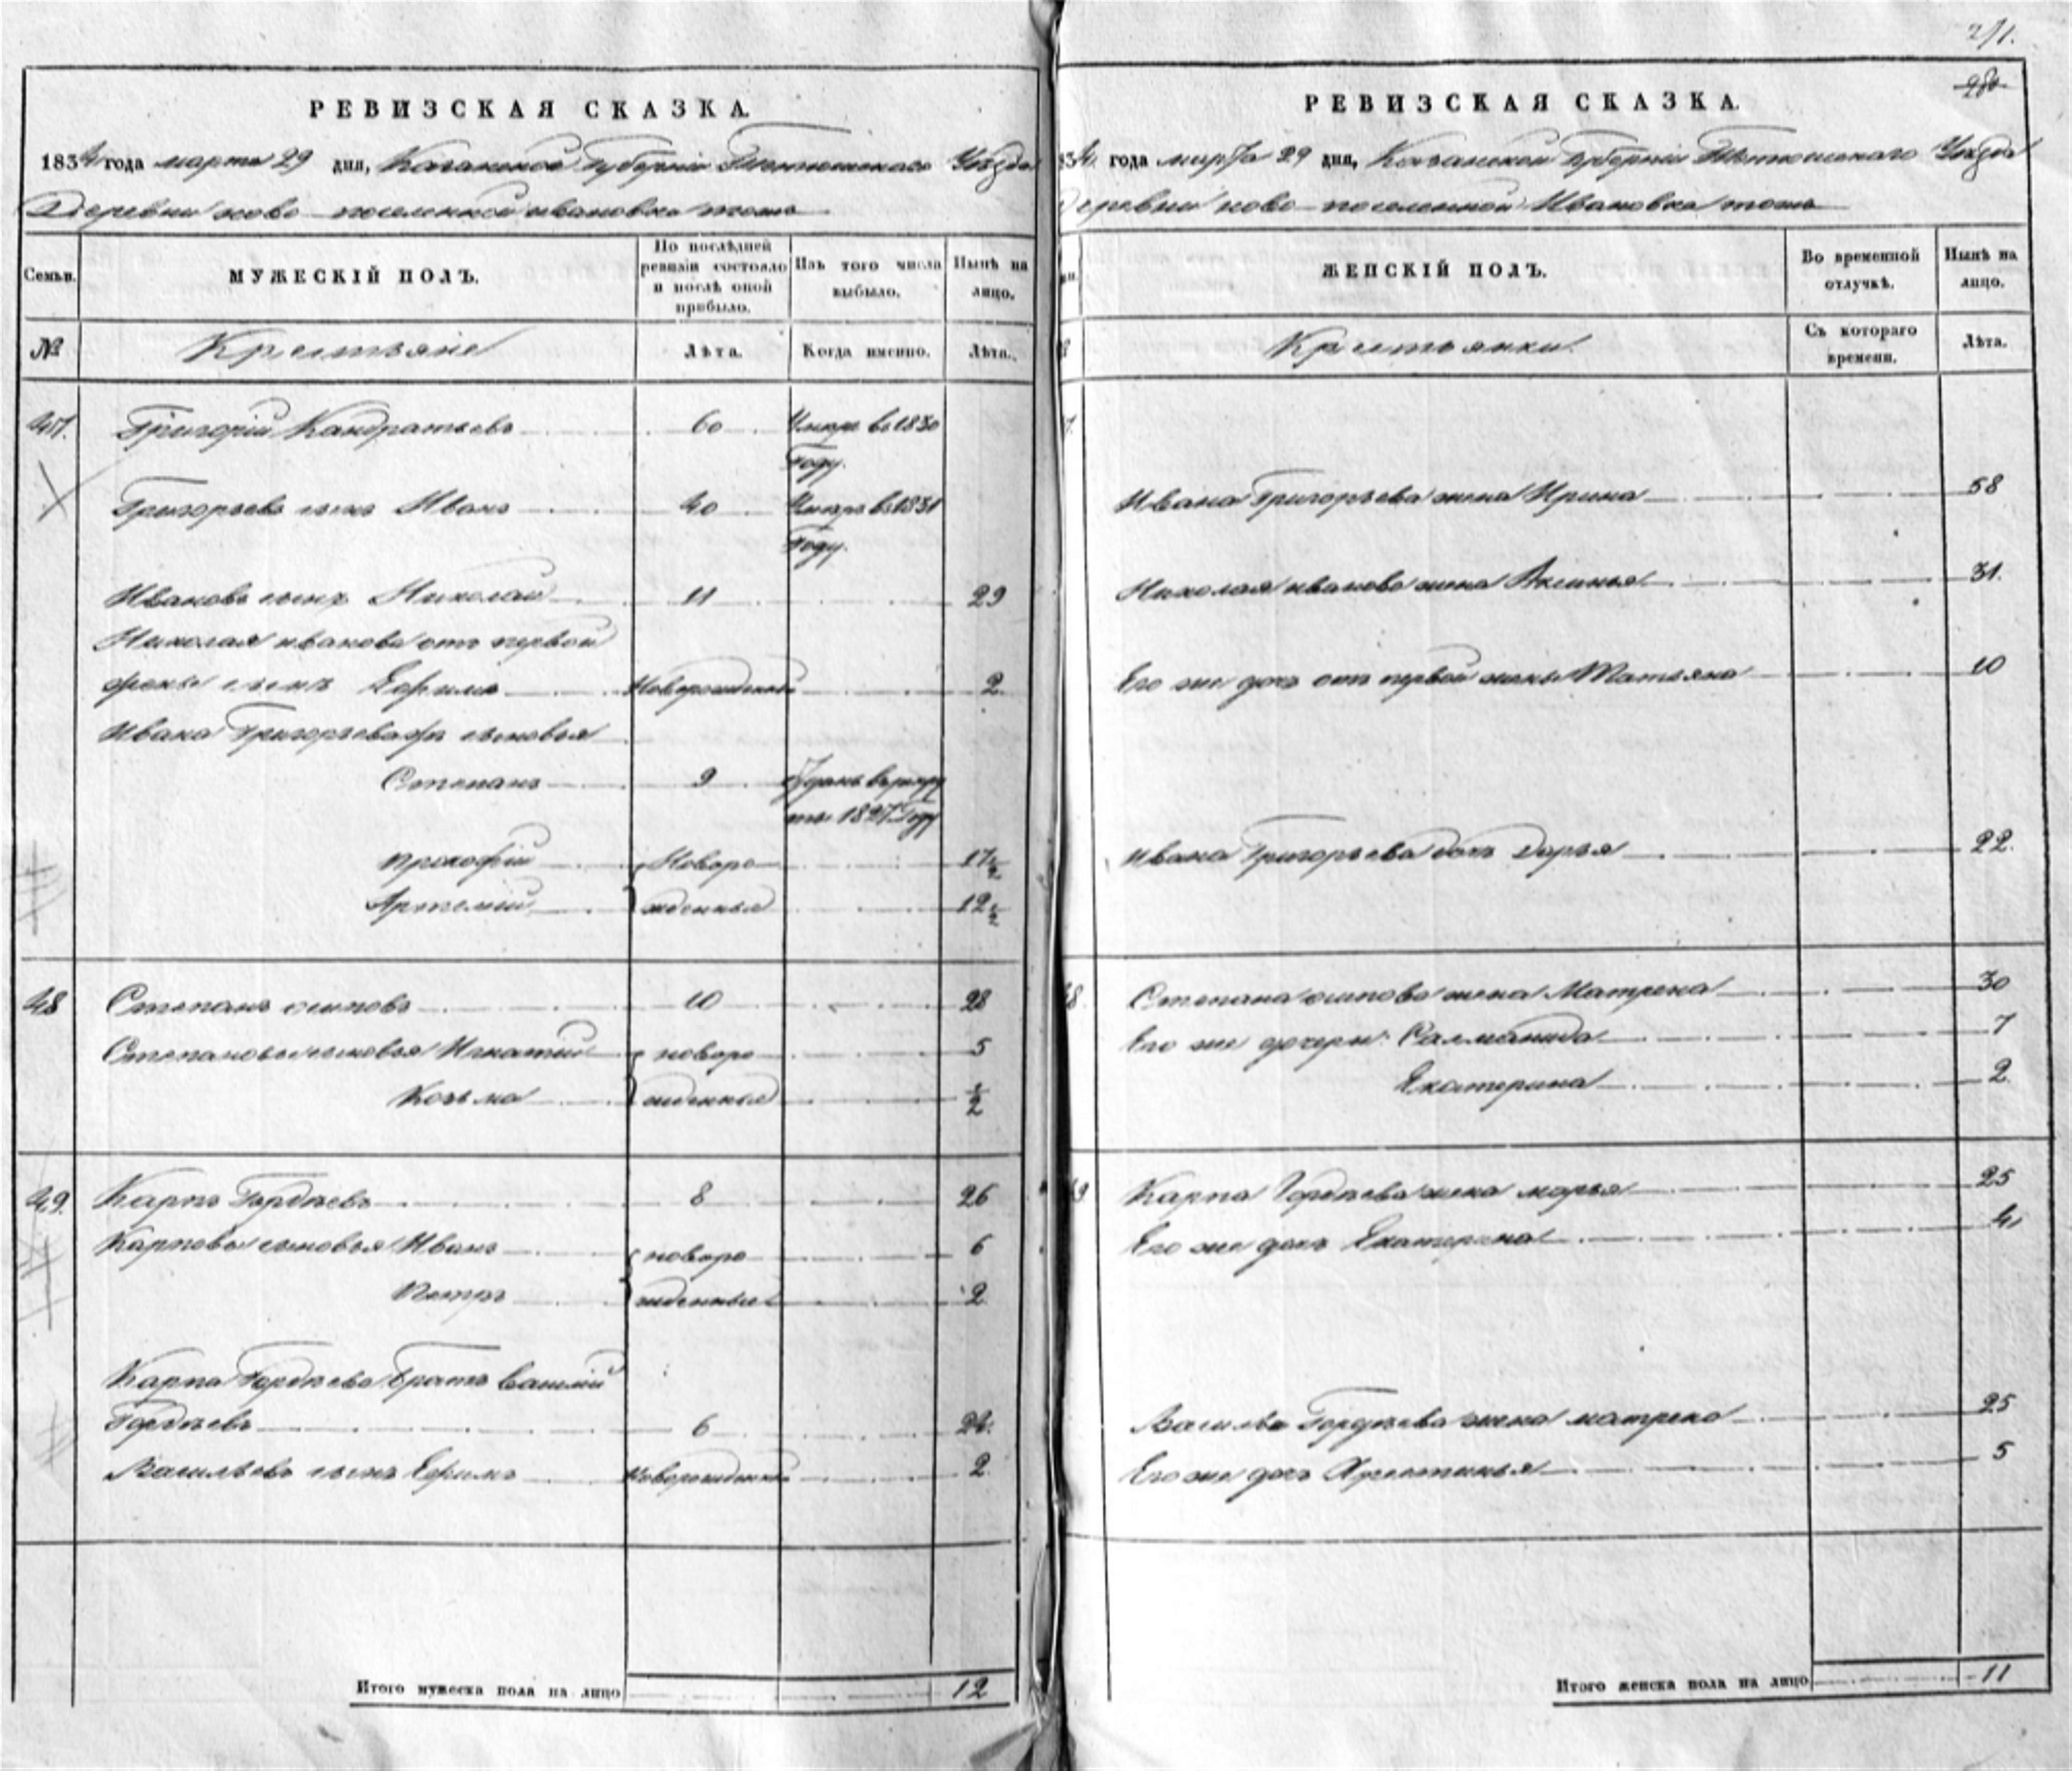 РЕВИЗСКАЯ СКАЗКА.
1834 года марта 29 дня, Казанской Губернiи Тетюшскаго Уѣзда
Деревни ново поселенной ивановка тожъ
Семьи.
МУЖЕСКIЙ ПОЛЪ.
По послѣдней ревизiи состояло и послѣ оной прибыло.
Изъ того числа выбыло.
Нынѣ на лицо.
№
Крестьяне
Лѣта.
Когда именно.
Лѣта.
47. Григорiй Кандратьевъ 60 Умре въ 1830
Году.
Григорьевъ сынъ Иванъ 40 Умре въ 1831
Году.
Ивановъ сынъ Николай 11 29
Николая иванова отъ первой
жены сынъ Ефимъ Новорожденной 2
Ивана Григорьева сыновья
Степанъ 9 Зданъ въ рекру
ты 1827 Году
Прокофiй Новоро 17 1/2
Артемiй жденныя 12 1/2
48 Степанъ осиповъ 10 28
Степановы сыновья Игнатiй новоро 5
Козьма жденныя 1/2
49. Карпъ Гордѣевъ 8 26
Карповы сыновья Иванъ новоро 6
Петръ жденныя 2
Карпа Гордѣева Братъ Василiй
Гордѣевъ 6 24.
Васильевъ сынъ Ефимъ Новорожденной 2
Итого мужеска пола на лицо 12
271.
РЕВИЗСКАЯ СКАЗКА.
34. года марта 29 дня, Казанской Губернiи Тетюшскаго Уѣзда
Деревни ново поселенной Ивановка тожъ
ЖЕНСКIЙ ПОЛЪ.
Во временной отлучкѣ.
Нынѣ на лицо.
Крестьянки.
Съ котораго времени.
Лѣта.
7.
Ивана Григорьева жена Ирина 58
Николая иванова жена Аксинья 31.
Его же дочь отъ первой жены Татьяна 10
Ивана Григорьева дочь Дарья 22.
8. Степана осипова жена Матрена 30
Его же дочери: 7
Екатерина 2.
49 Карпа Гордѣева жена марья 25
Его же дочь Екатерина 4
Василья Гордѣева жена матрена 25
Его же дочь Хрестинья 5
Итого женска пола на лицо 11